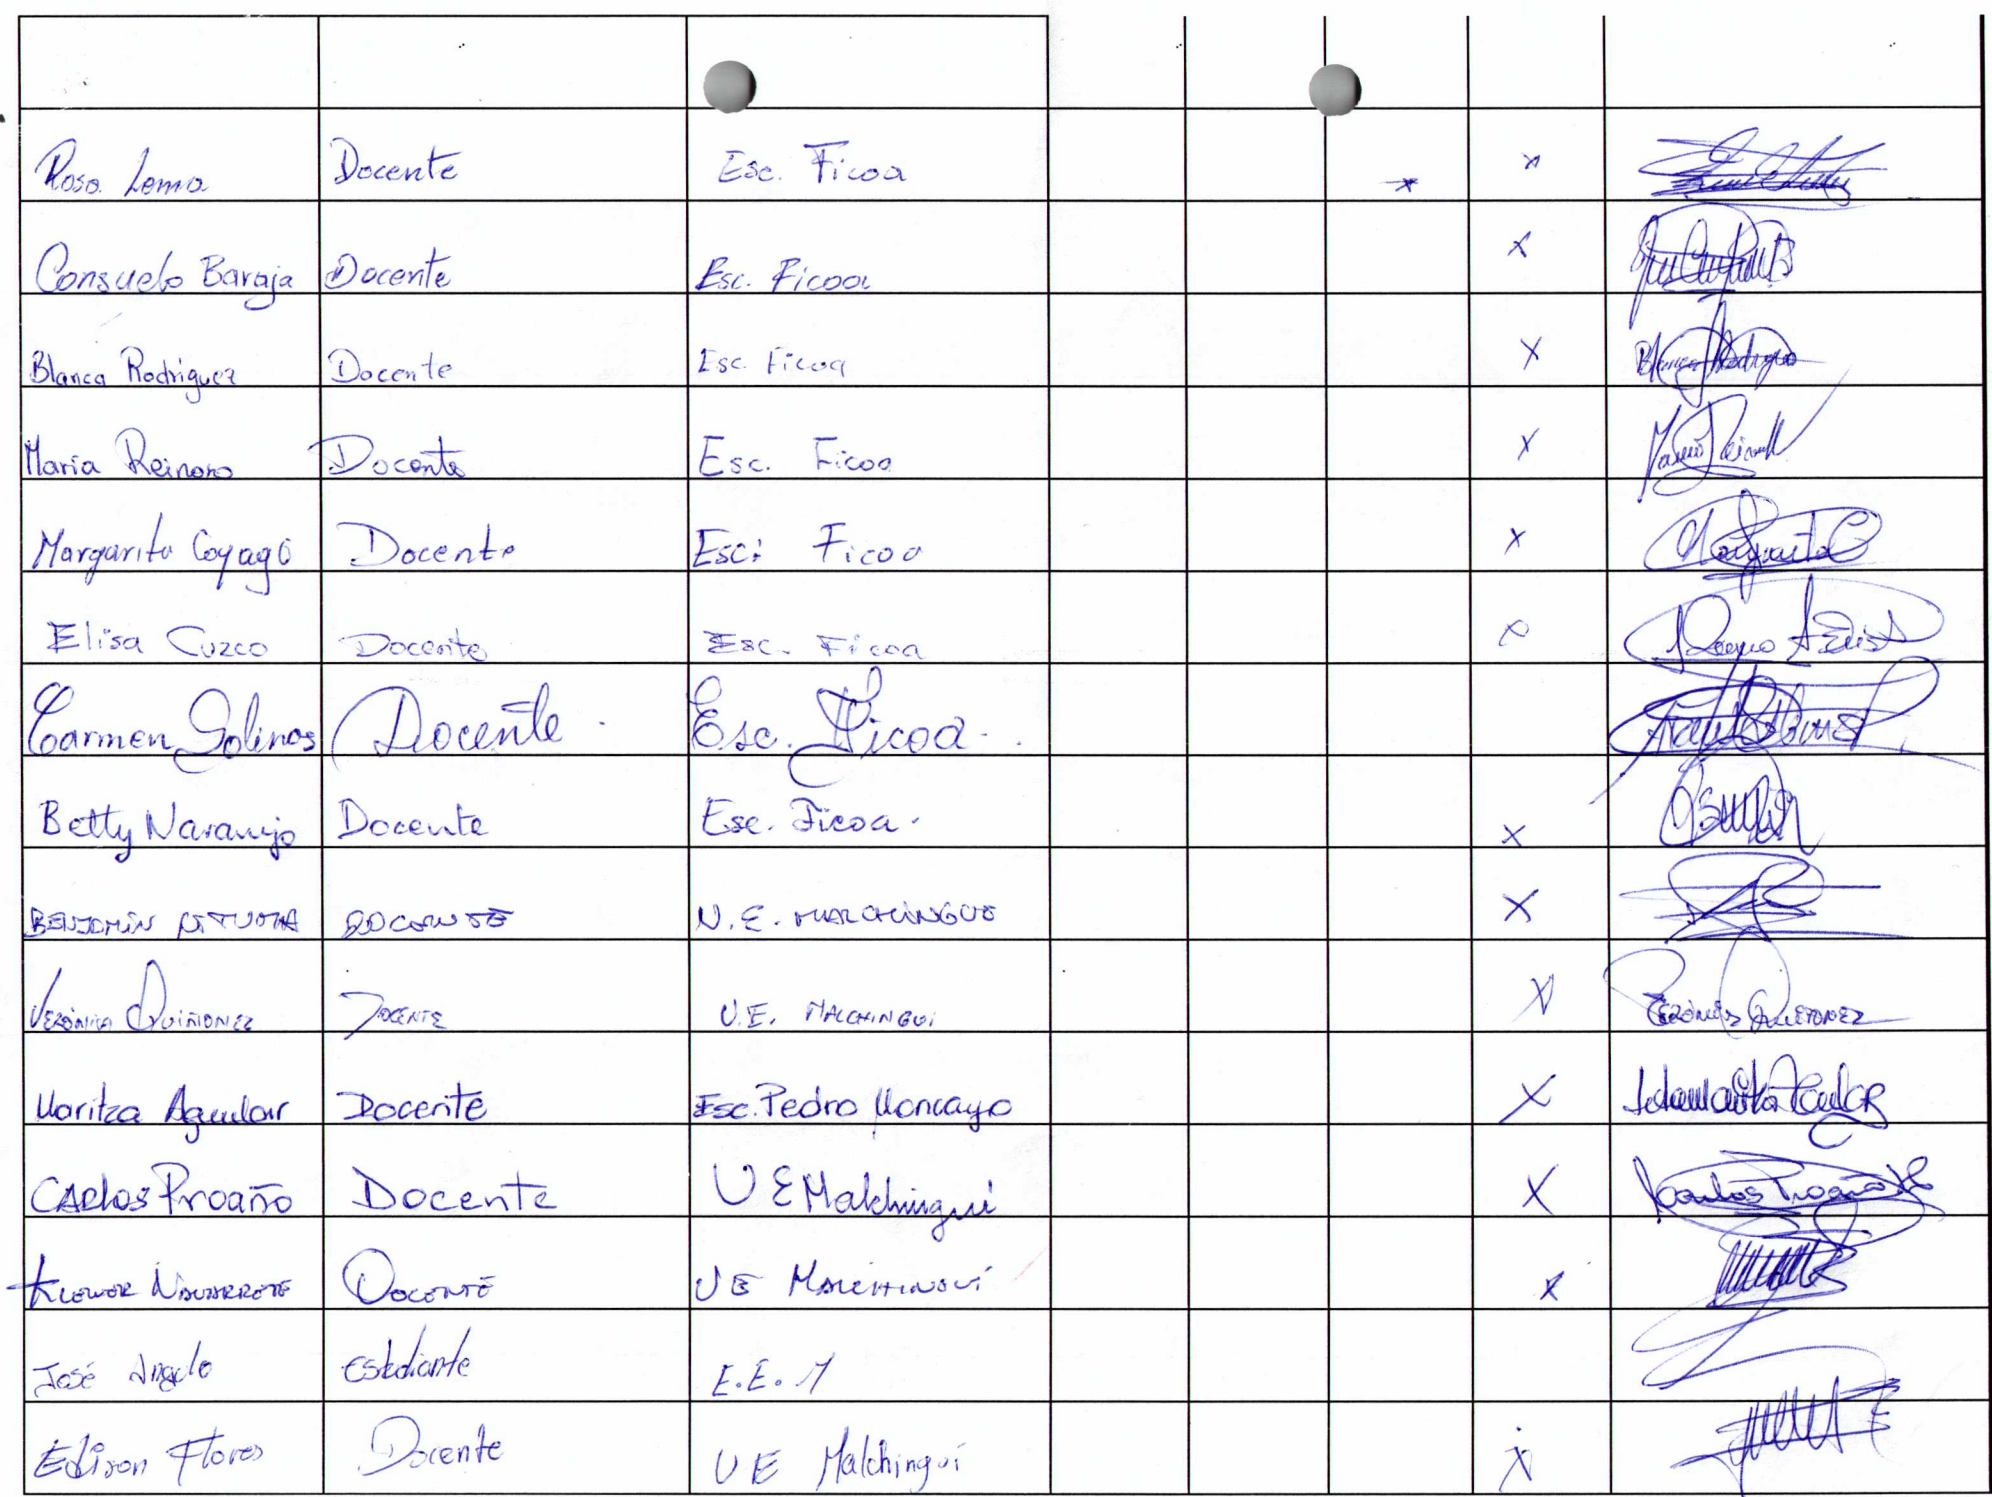 Rosa Lema Docente Esc. Ficoa x x
Consuelo Baraja Docente Esc. Ficoa x
Blanca Rodriguez Docente Esc. Ficoa x Blanca Rodriguez
María Reinoso Docente Esc. Ficoa x
Margarita Coyago Docente Esc: Ficoa x Margarita C
Elisa Cuzco Docente Esc. Ficoa x
Carmen Salinas Docente Esc. Ficoa
Betty Naranjo Docente Esc. Ficoa. x
BENJAMÍN DOCENTE U.E. MALCHINGUI X
VERÓNICA QUIÑONEZ DOCENTE U.E. MALCHINGUI X VERÓNICA QUIÑONEZ
Maritza Aguilar Docente Esc. Pedro Moncayo X
CARLOS Proaño Docente U E Malchinguí X Carlos Proaño
NAVARRETE DOCENTE U E MALCHINGUÍ X
José Angulo Estudiante E.E.M
Edison Flores Docente U E Malchinguí X